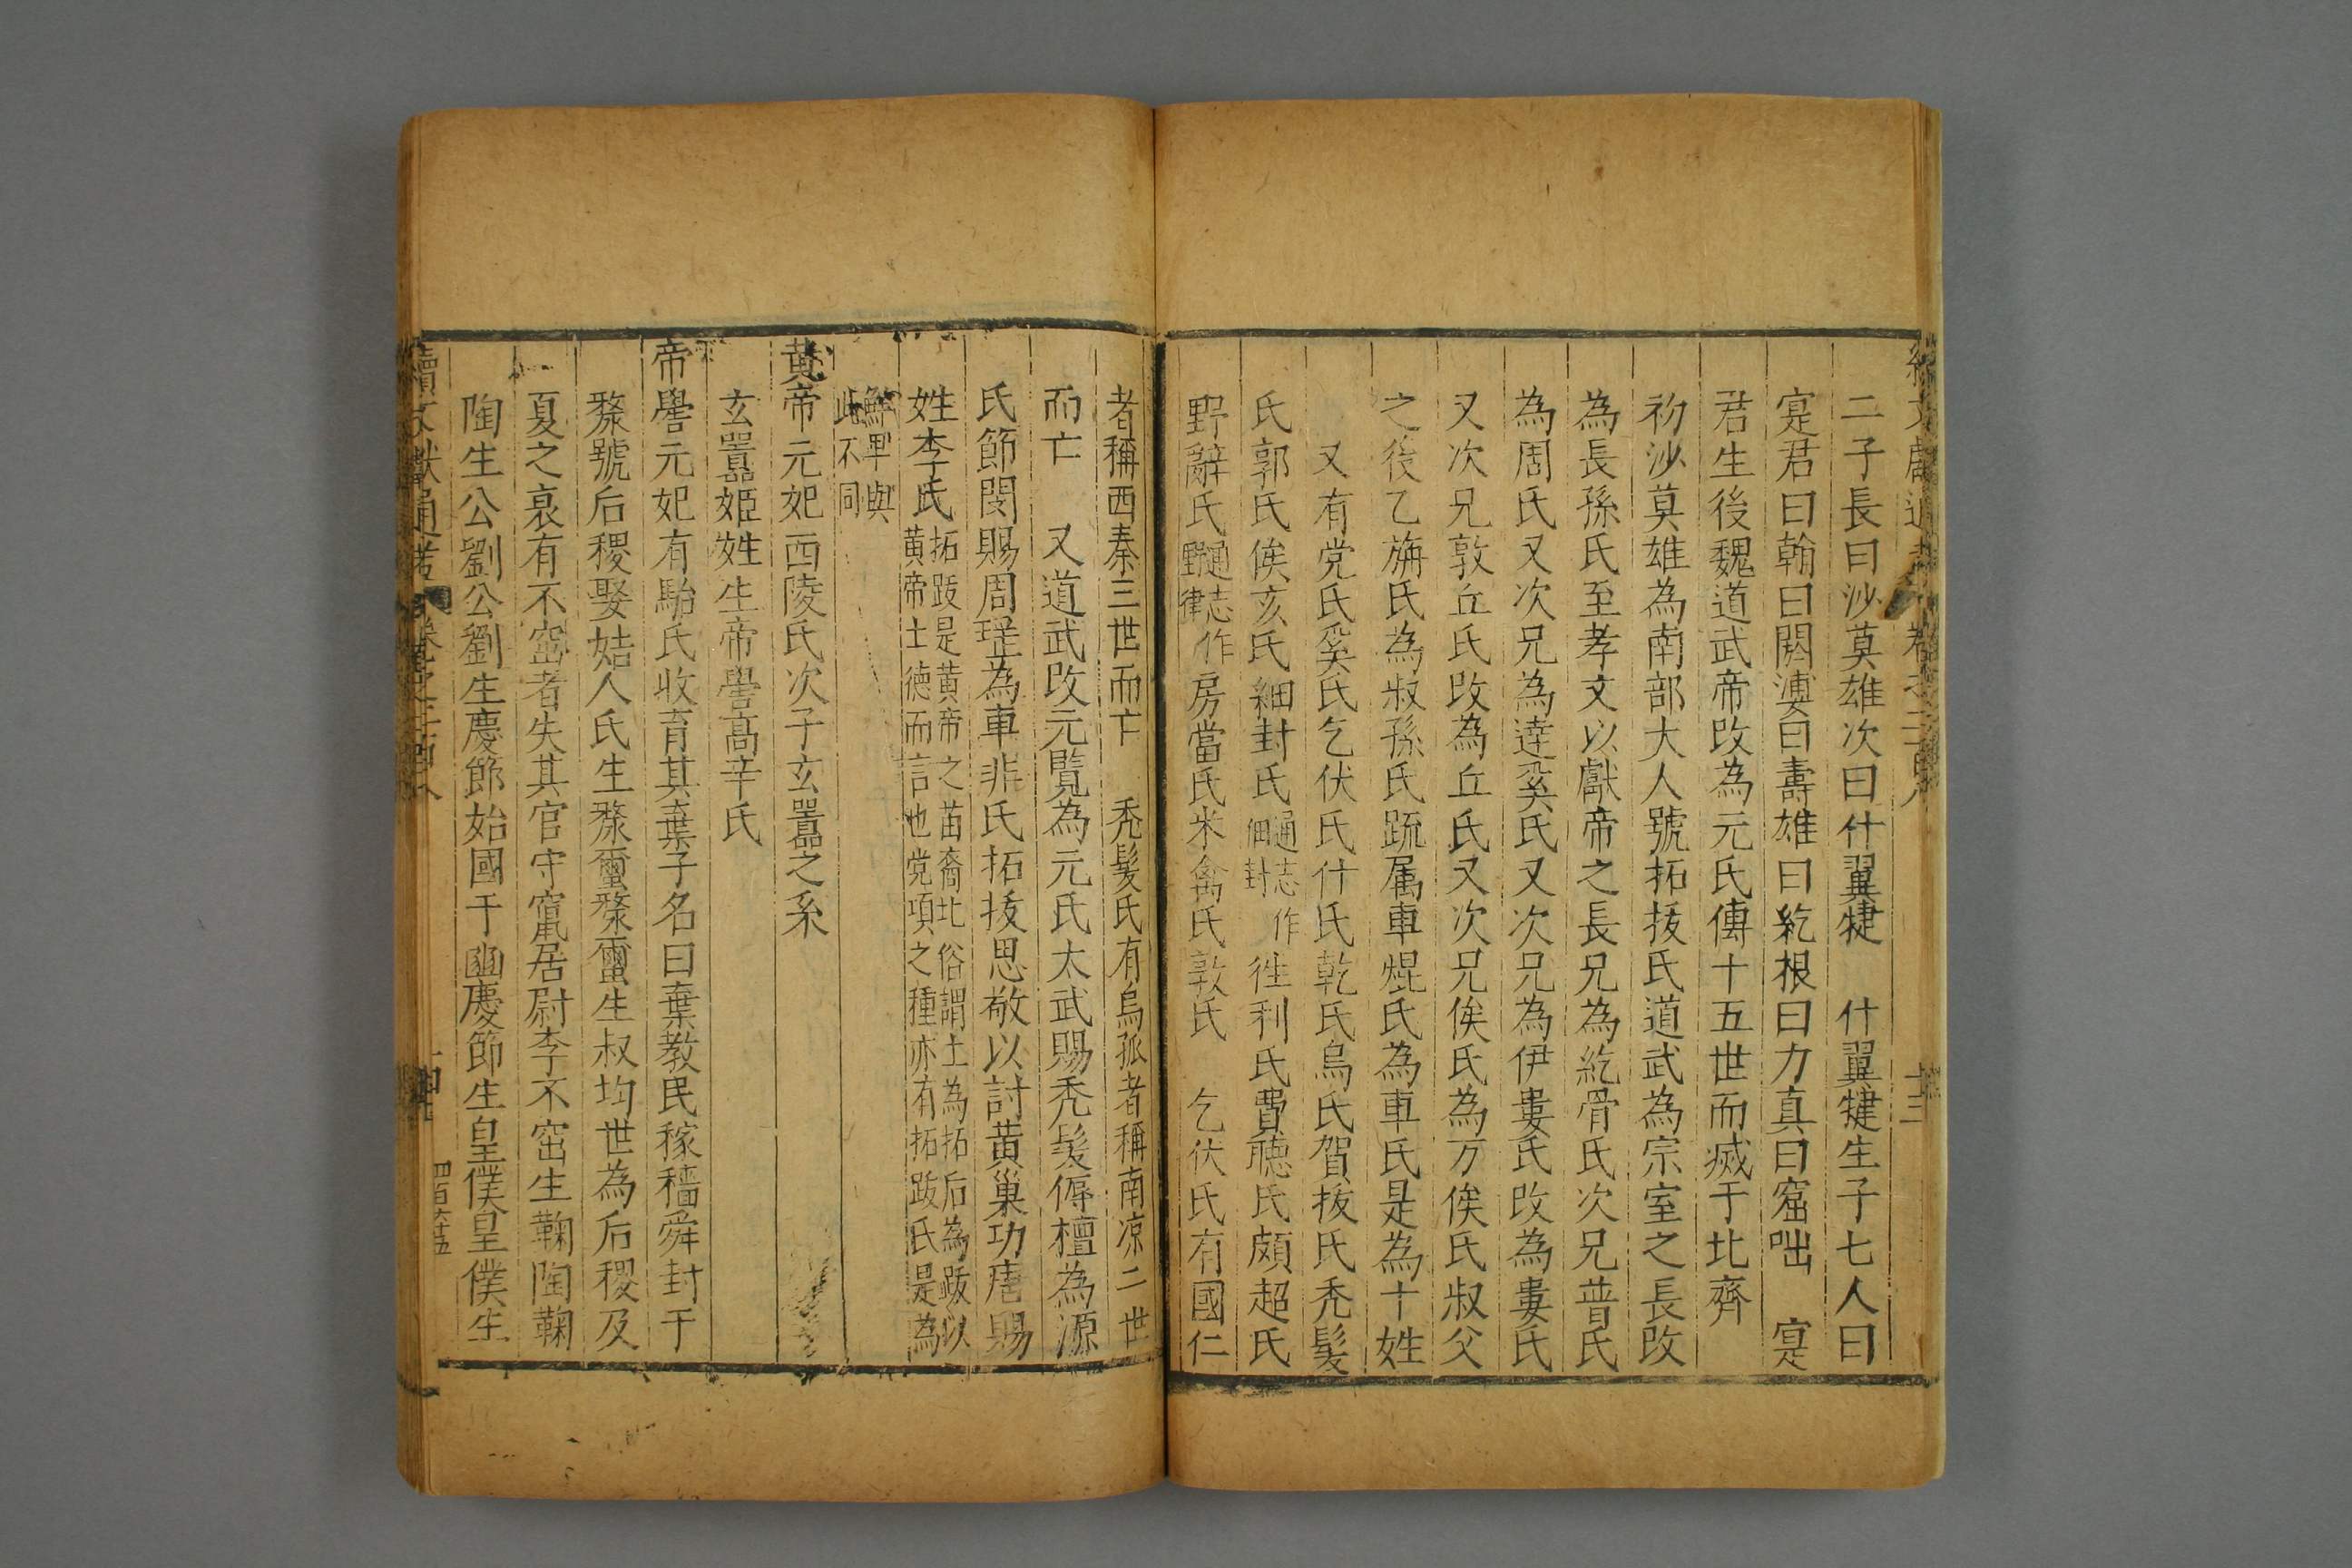 二子長曰沙莫雄次曰什翼犍　什翼犍生子七人曰
寔君曰翰曰閼婆曰壽雄曰紇根曰力真曰窟咄　寔
君生後魏道武帝改為元氏傳十五世而滅于北齊
初沙莫雄為南部大人號拓抜氏道武為宗室之長改
為長孫氏至孝文以獻帝之長兄為紇骨氏次兄普氏
為周氏又次兄為達奚氏又次兄為伊婁氏改為婁氏
又次兄敦丘氏改為丘氏又次兄俟氏為万俟氏叔父
之後乙旃氏為叔孫氏䟽属車焜氏為車氏是為十姓
又有党氏奚氏乞伏氏什氏乾氏烏氏賀抜氏禿髪
氏郭氏俟亥氏細封氏通志作佃封徃利氏費聽氏頗超氏
野辭氏通志作野律房當氏米禽氏敦氏　乞伏氏有國仁
者稱西秦三世而亡　禿髪氏有烏孤者稱南凉二世
而亡　又道武改元覽為元氏太武賜禿髪傉檀為源
氏節閔賜周瑶為車非氏拓抜思敬以討黄巢功唐賜
姓李氏拓跋是黄帝之苗裔北俗謂土為拓后為跋以黄帝土徳而言也党項之種亦有拓跋氏是為
鮮卑與此不同
黄帝元妃西陵氏次子玄囂之系
玄囂姬姓生帝嚳高辛氏
帝嚳元妃有駘氏收育其棄子名曰棄教民稼穡舜封于
漦號后稷娶姞人氏生漦璽漦璽生叔均世為后稷及
夏之衰有不窋者失其官守竄居尉李不窋生鞠陶鞠
陶生公劉公劉生慶節始國于豳慶節生皇僕皇僕生
續文獻通考　卷之二百八
四百六十五